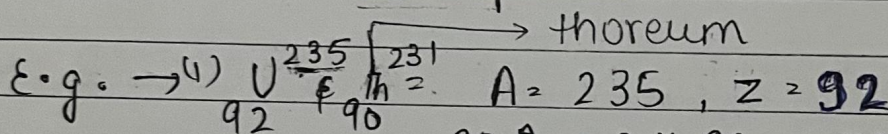 → thoreum
E.g. →(1) ₉₂U²³⁵ & ₉₀Th²³¹ = A = 235, Z = 92